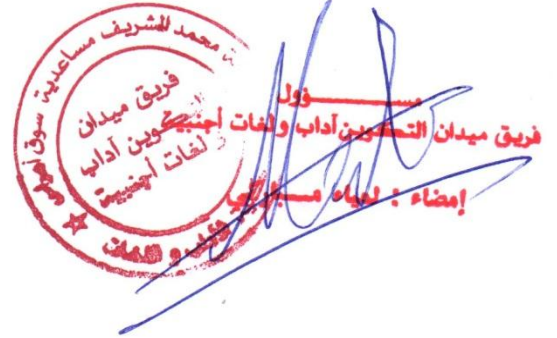 محمد الشريف مساعدية سوق أهراس
فريق ميدان
التكوين آداب
و لغات أجنبية
الآداب و اللغات
مســــــؤول
فريق ميدان التكوين آداب ولغات أجنبية
إمضاء : لمياء